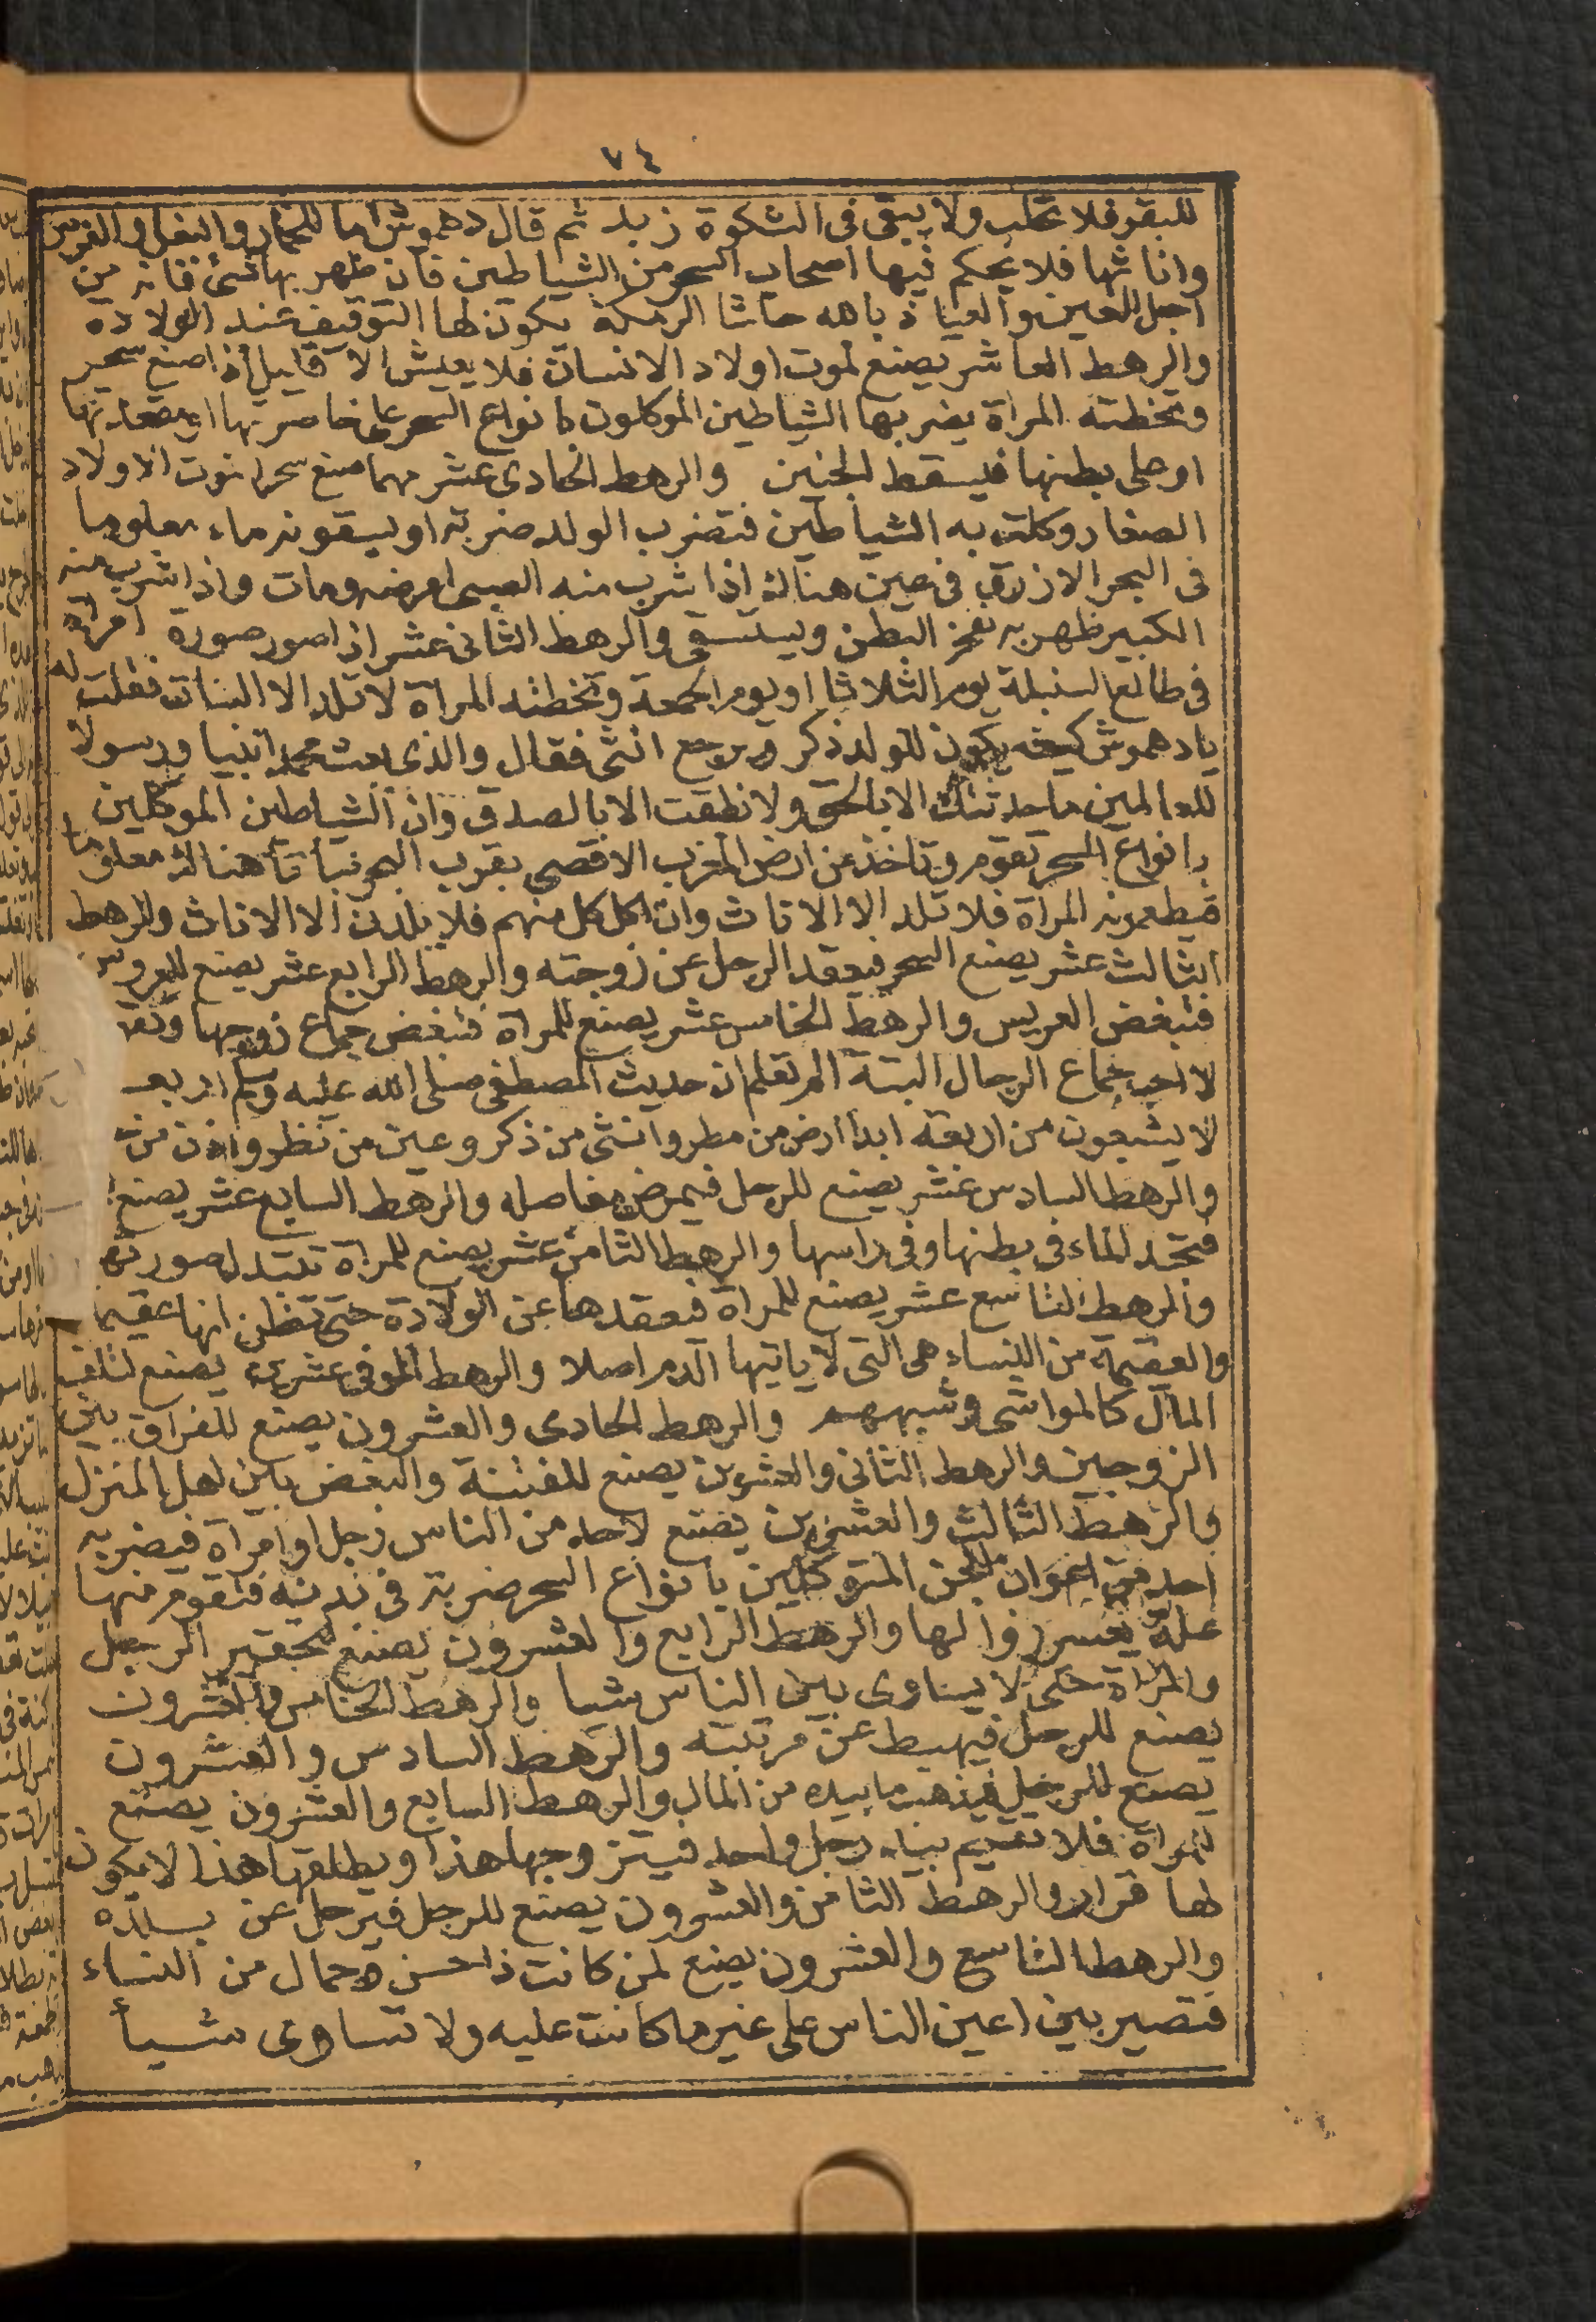 ٧٤
للبقر فلا تحلب ولا يبقى فى الشكوة زبد ثم قال دهموش اما للحمار والبغل والفرس
واناثها فلا يحكم فيها اصحاب السحر من الشياطين فان ظهر بها شئ فانه من
اجل العين والعياذ بالله حاشا الرمكة يكون لها التوقيف عند الولادة
والرهط العاشر يصنع لموت اولاد الانسان فلا يعيش الا قليل اذا صنع سحر
وتخطته المراة يضربها الشياطين الموكلون بانواع السحر على خاصرتها او مقعدتها
او على بطنها فيسقط الجنين والرهط الحادى عشر مهما صنع سحرا لموت الاولاد
الصغار وكلت به الشياطين فتضرب الولد ضربة او يسقونه ماء معلوما
فى البحر الازرق فى عين هنالك اذا شرب منه الصبى امرضه ومات واذا شرب منه
الكبير ظهر به نفخ البطن ويستسقى والرهط الثانى عشر اذا صور صورة امراة
فى طالع السنبلة يوم الثلاثا او يوم الجمعة وتخطته المراة لا تلد الا البنات فقلت له
يا دهموش كيف يكون للولد ذكر ويرجع انثى فقال والذى بعث محمدا نبيا ورسولا
للعالمين ما حدثتك الا بالحق ولا نطقت الا بالصدق وان الشياطين الموكلين
بانواع السحر تقوم وتاخذ من ارض المغرب الاقصى بقرب البحر نباتا هنالك معلوما
فيطعمونه المراة فلا تلد الا الاناث وان اكل كل منهم فلا يلدن الا الاناث والرهط
الثالث عشر يصنع السحر فيعقد الرجل عن زوجته والرهط الرابع عشر يصنع للعروس
فتبغض العريس والرهط الخامس عشر يصنع للمراة فتبغض جماع زوجها وتقـ
لا احب جماع الرجال البتة الم تعلم ان حديث المصطفى صلى الله عليه وسلم اربعـ
لا يشبعون من اربعة ابدا ارض من مطر وانثى من ذكر وعين من نظر واذن من
والرهط السادس عشر يصنع للرجل فيمرض مفاصله والرهط السابع عشر يصنع
فتجد الماء فى بطنها وفى راسها والرهط الثامن عشر يصنع للمراة تتبدل صورتها
والرهط التاسع عشر يصنع للمراة فيعقدها عن الولادة حتى تظن انها عقيما
والعقيمة من النساء هى التى لا ياتيها الدم اصلا والرهط الموفى عشرين يصنع لتلف
المال كالمواشى وشبههم والرهط الحادى والعشرون يصنع للفراق بين
الزوجين والرهط الثانى والعشرين يصنع للفتنة والبغض بين اهل المنزل
والرهط الثالث والعشرين يصنع لاحد من الناس رجل او امراة فيضربه
احد من اعوان الجن المتوكلين بانواع السحر ضربة فى بدنه فتقوم منها
علة يعسر زوالها والرهط الرابع والعشرون يصنع لتحقير الرجل
والمراة حتى لا يساوى بين الناس شيا والرهط الخامس والعشرون
يصنع للرجل فيهبط عن مرتبته والرهط السادس والعشرون
يصنع للرجل فيذهب ما بيده من المال والرهط السابع والعشرون يصنع
للمراة فلا تقيم ببناء رجل واحد فيتزوجها هذا ويطلقها هذا لا يكون
لها قرار والرهط الثامن والعشرون يصنع للرجل فيرحل عن بلده
والرهط التاسع والعشرون يصنع لمن كانت ذا حسن وجمال من النساء
فتصير بين اعين الناس على غير ما كانت عليه ولا تساوى شيأ